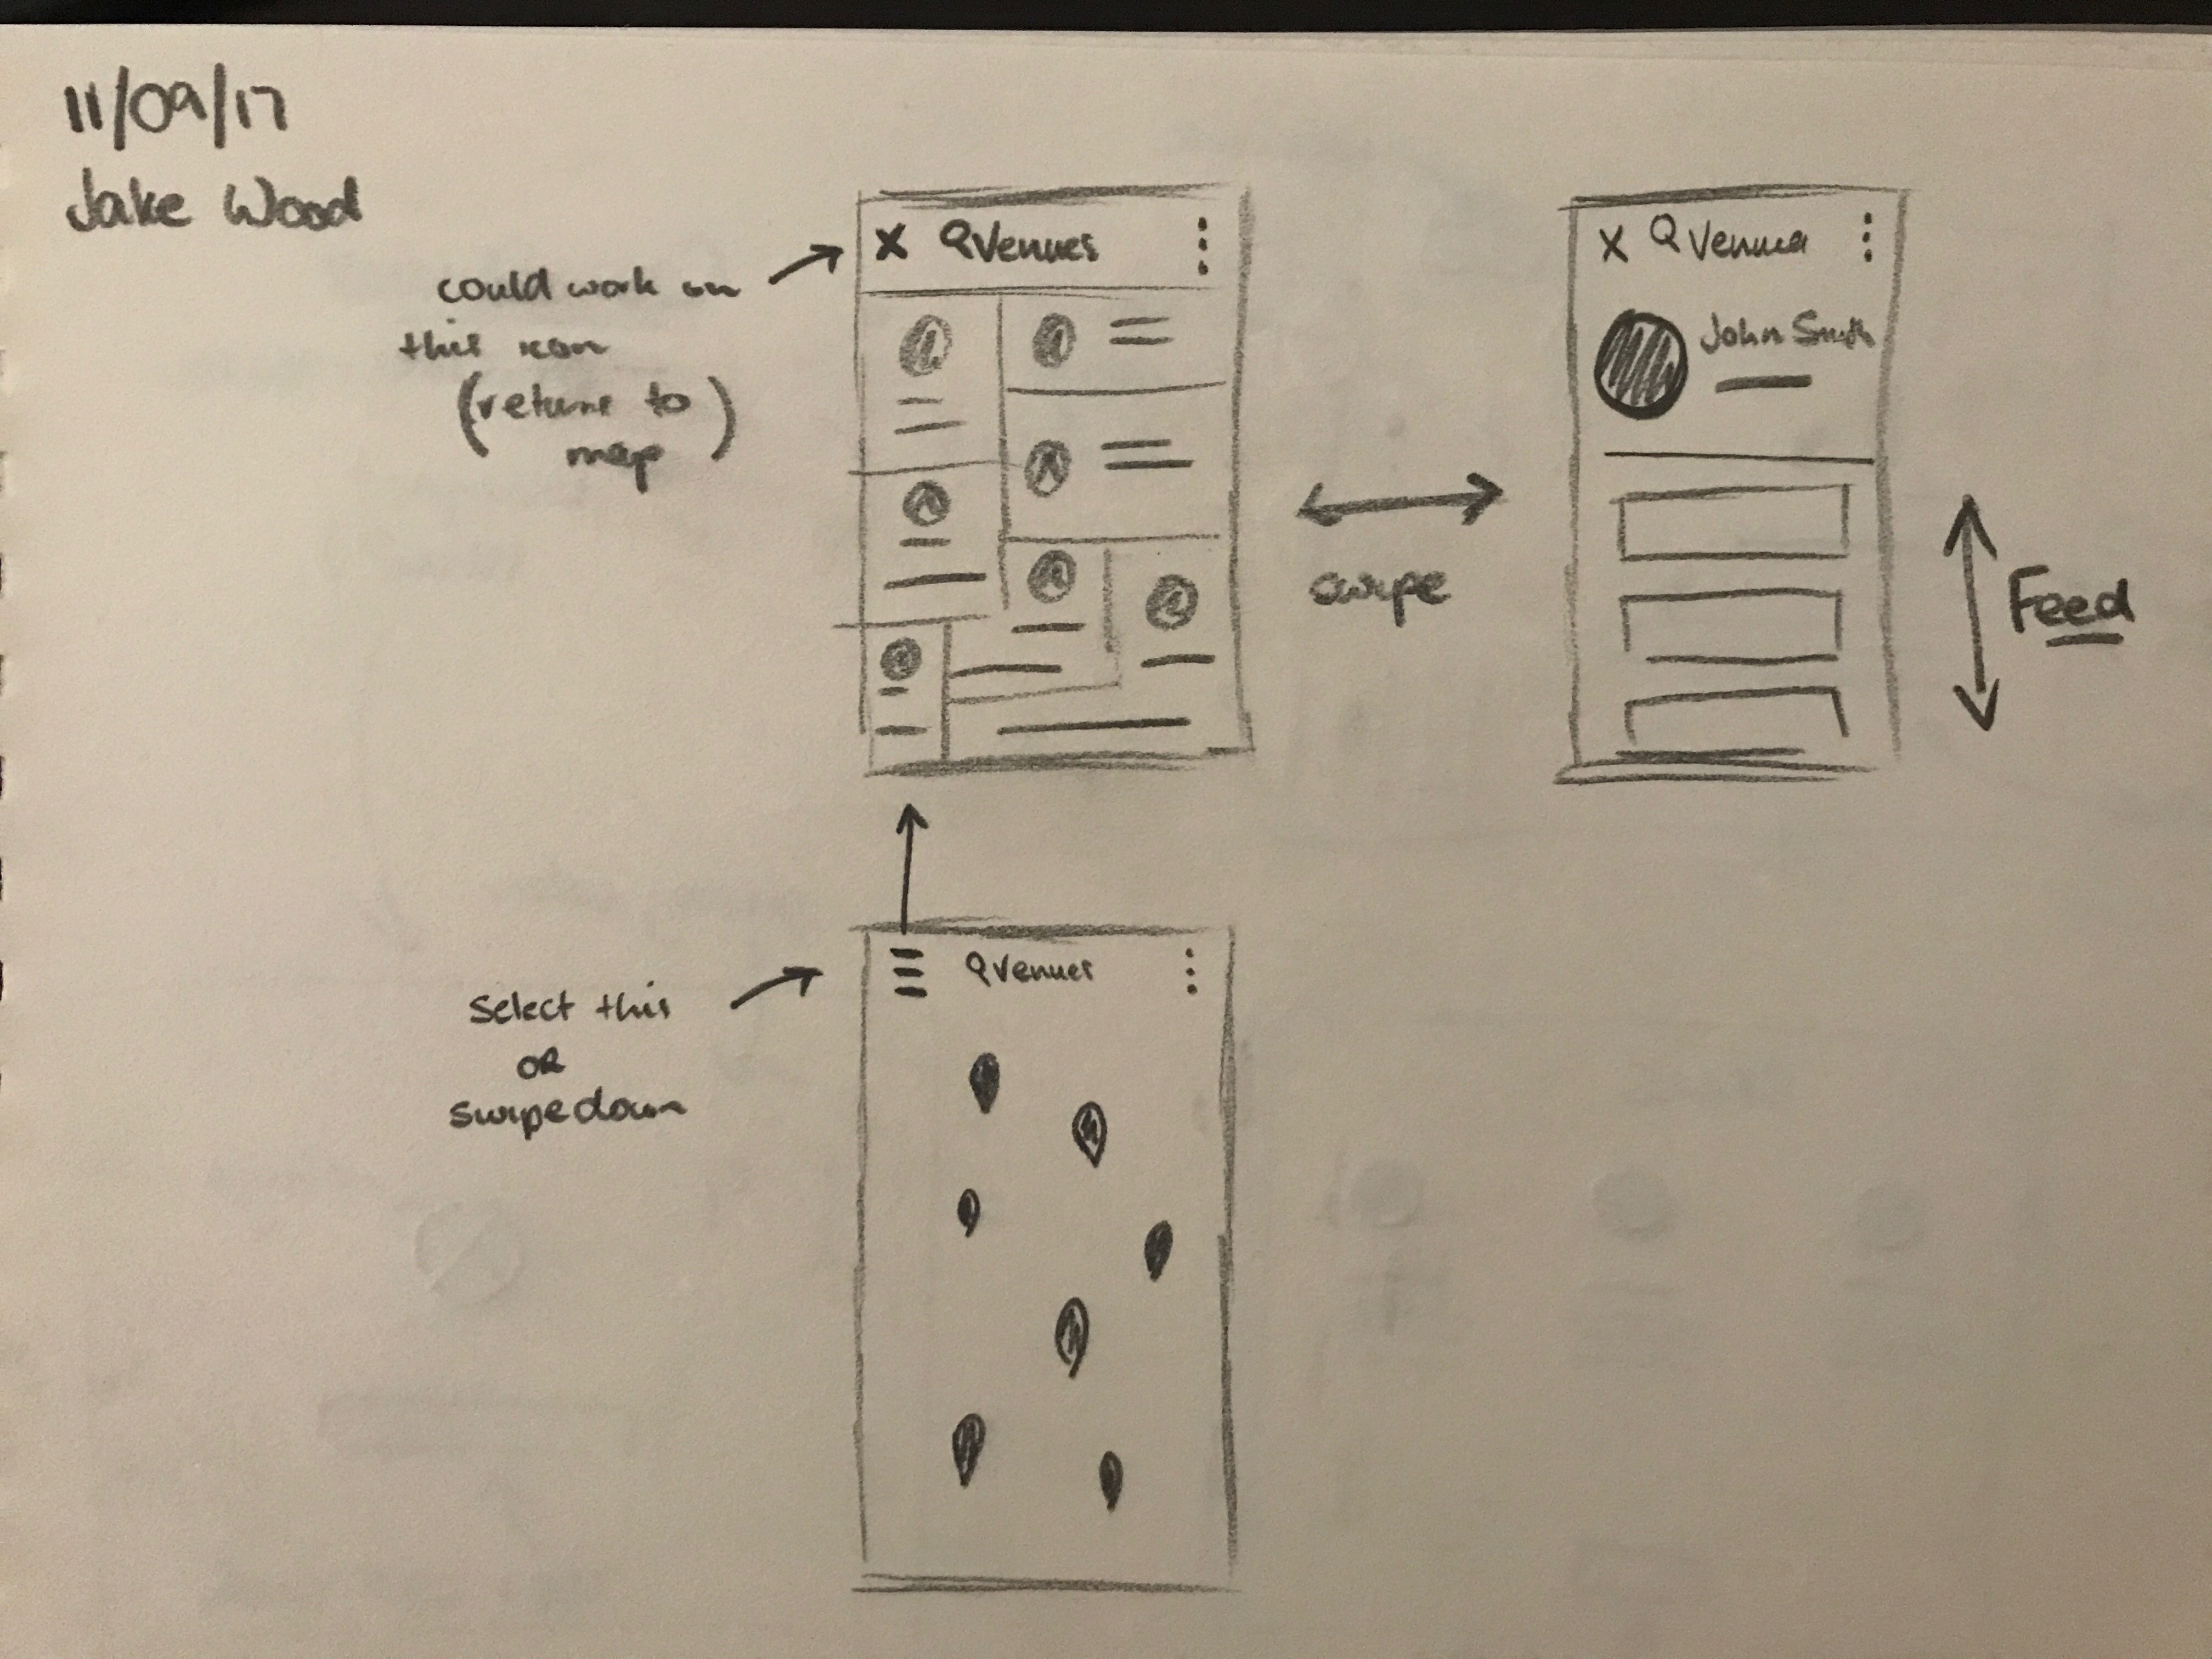 11/09/17
Jake Wood
could work on
this icon
(return to
map)
X Venues
X Venues
John Smith
swipe
Feed
Select this
OR
swipe down
Venues